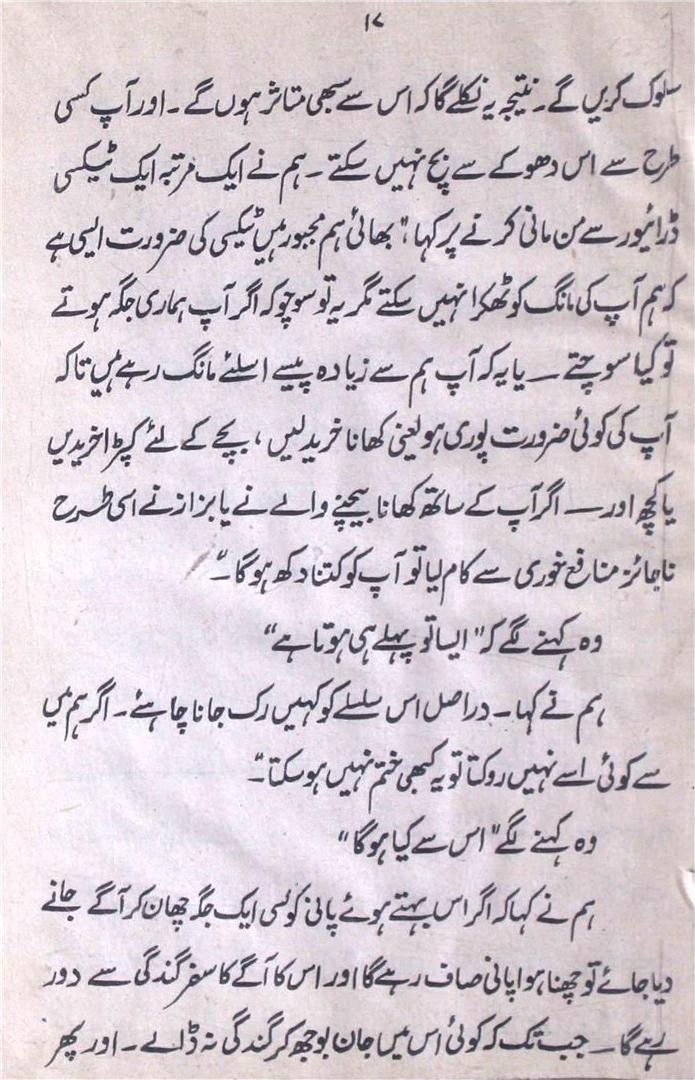 ۱۷
سلوک کریں گے۔ نتیجہ یہ نکلے گا کہ اس سے سبھی متاثر ہوں گے۔ اور آپ کسی
طرح سے اس دھوکے سے بچ نہیں سکتے۔ ہم نے ایک مرتبہ ایک ٹیکسی
ڈرائیور سے من مانی کرنے پر کہا، "بھائی ہم مجبور ہیں ٹیکسی کی ضرورت ایسی ہے
کہ ہم آپ کی مانگ کو ٹھکرا نہیں سکتے مگر یہ تو سوچو کہ اگر آپ ہماری جگہ ہوتے
تو کیا سوچتے — یا یہ کہ آپ ہم سے زیادہ پیسے اسلئے مانگ رہے ہیں تاکہ
آپ کی کوئی ضرورت پوری ہو یعنی کھانا خرید لیں، بچے کے لئے کپڑا خریدیں
یا کچھ اور — اگر آپ کے ساتھ کھانا بیچنے والے نے یا بزاز نے اسی طرح
ناجائز منافع خوری سے کام لیا تو آپ کو کتنا دکھ ہوگا۔"
وہ کہنے لگے کہ "ایسا تو پہلے ہی ہوتا ہے"
ہم نے کہا۔ دراصل اس سلسلے کو کہیں رک جانا چاہئے۔ اگر ہم میں
سے کوئی اسے نہیں روکتا تو یہ کبھی ختم نہیں ہوسکتا۔"
وہ کہنے لگے "اس سے کیا ہوگا"
ہم نے کہا کہ اگر اس بہتے ہوئے پانی کو کسی ایک جگہ چھان کر آگے جانے
دیا جائے تو چھنا ہوا پانی صاف رہے گا اور اس کا آگے کا سفر گندگی سے دور
رہے گا — جب تک کہ کوئی اس میں جان بوجھ کر گندگی نہ ڈالے۔ اور پھر